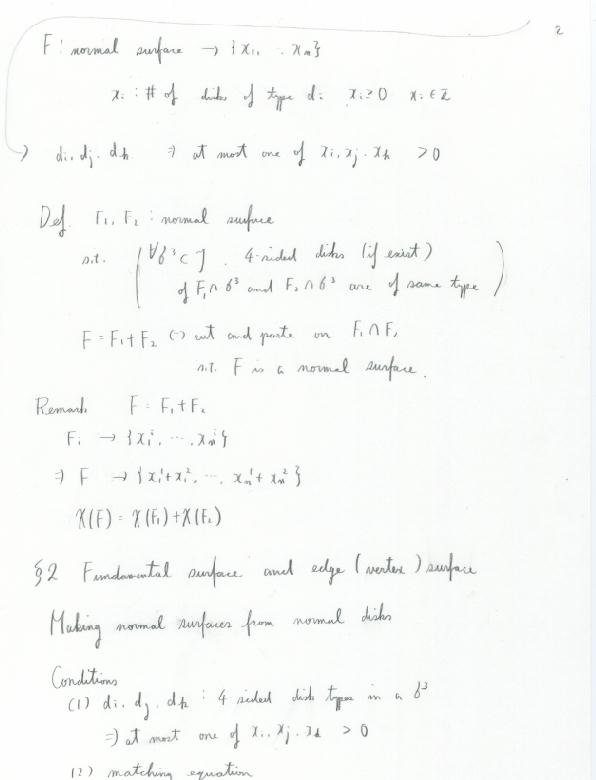 2
F : normal surface → {x₁, ‥ xₙ}
xᵢ : # of disks of type dᵢ xᵢ ≥ 0 xᵢ ∈ ℤ
dᵢ, dⱼ, dₖ ⇒ at most one of xᵢ, xⱼ, xₖ > 0
Def. F₁, F₂ : normal surface
s.t. ( ∀σ³ ⊂ J, 4-sided disks (if exist)
of F₁ ∩ σ³ and F₂ ∩ σ³ are of same type )
F = F₁ + F₂ ⇔ cut and paste on F₁ ∩ F₂
s.t. F is a normal surface.
Remark F = F₁ + F₂
Fᵢ → {x₁ⁱ, …, xₙⁱ}
⇒ F → {x₁¹+x₁², …, xₙ¹+xₙ²}
χ(F) = χ(F₁) + χ(F₂)
§2 Fundamental surface and edge (vertex) surface
Making normal surfaces from normal disks
Conditions
(1) dᵢ, dⱼ, dₖ : 4 sided disk types in a σ³
⇒ at most one of xᵢ, xⱼ, xₖ > 0
(2) matching equation